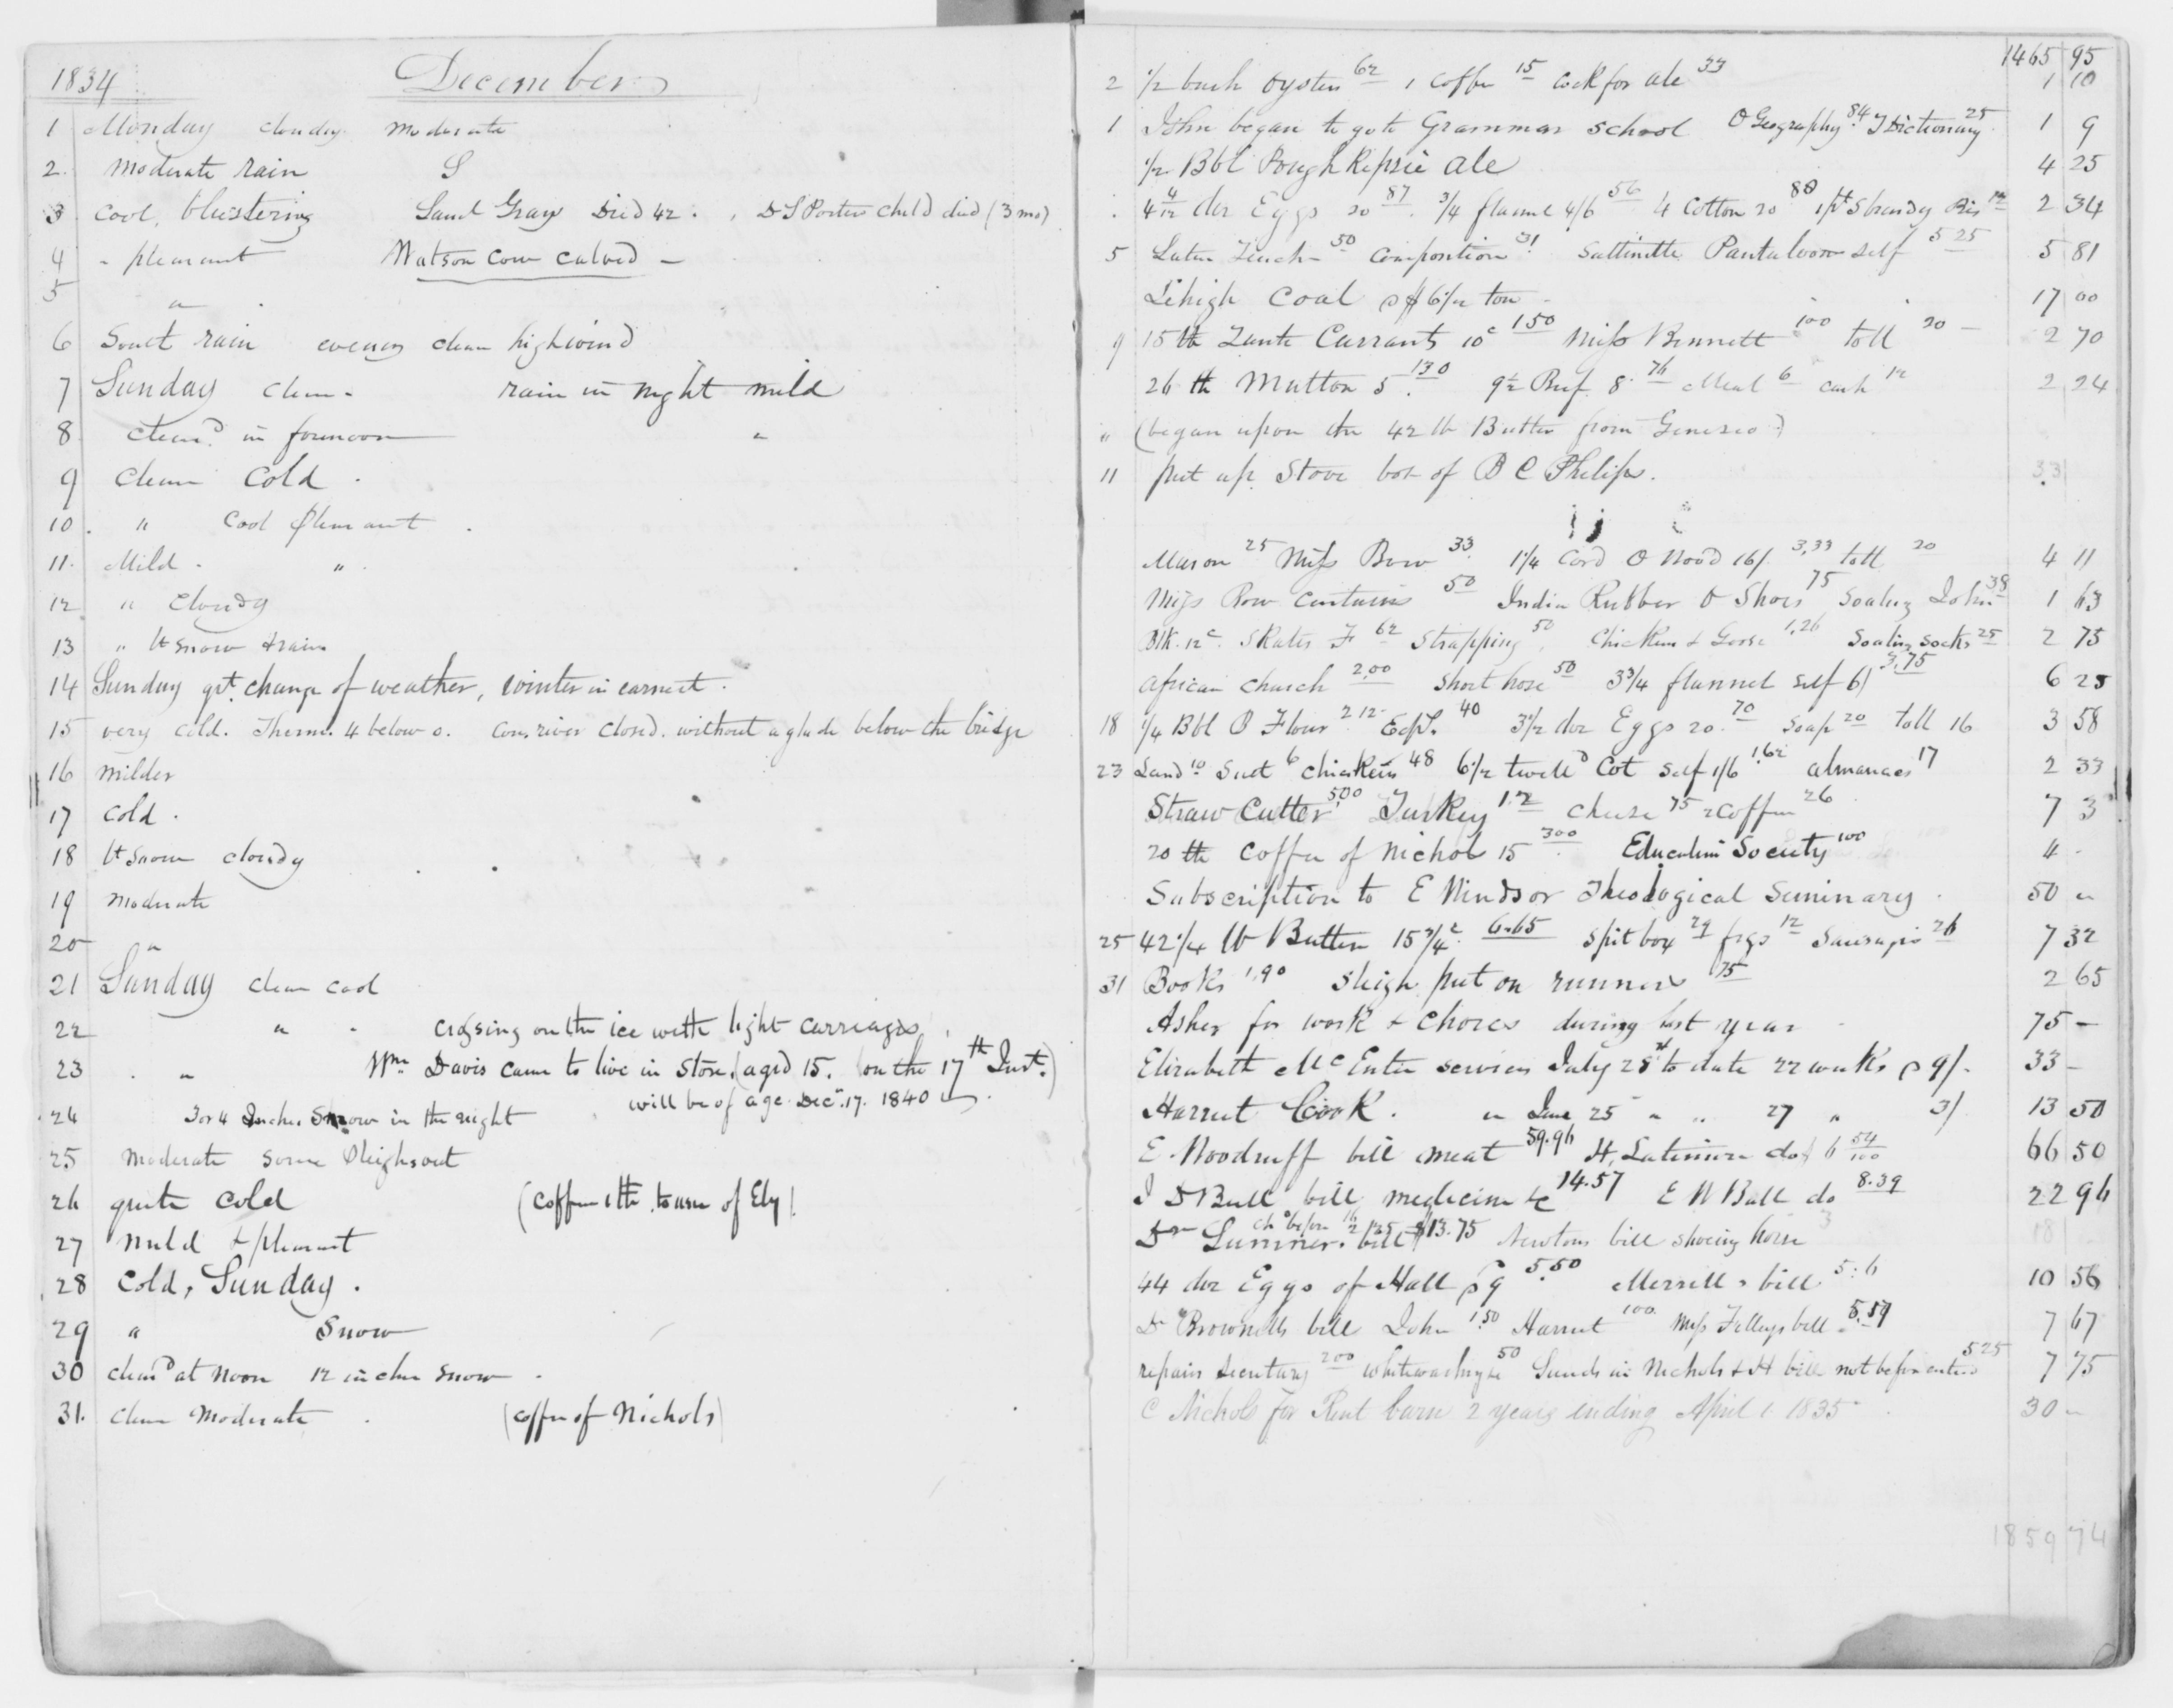 1834 December
1 Monday cloudy moderate
2. moderate rain S
3 cool, blustering Saml Gray Died 42. D S Porters child died (3 mo)
4 " pleasant Watson Cow calved —
5 "
6 South rain evening clear high wind
7 Sunday clear - rain in night mild
8 cleard in forenoon "
9 clear cold.
10. " cool pleasant.
11. Mild. "
12 " cloudy
13 " lt snow & rain
14 Sunday grt change of weather, winter in earnest.
15 very cold. Therm. 4 below 0. Con. river closed. without a glade below the bridge
16 milder
17 cold.
18 lt snow cloudy
19 moderate
20 "
21 Sunday clear cool
22 " crossing on the ice with light carriages
23 " Wm Davis came to live in Store. (aged 15. on the 17th Inst.)
will be of age Decr. 17. 1840
24 3 or 4 Inches Snow in the night
25 moderate some Sleighs out
26 quite cold (coffee of Ely)
27 mild & pleasant
28 Cold, Sunday.
29 " Snow
30 cleard at Noon 12 inches snow
31. clear moderate (coffee of Nichols)
1465 95
2 1/2 bush Oysters 62 1 Coffee 15 cock for ale 33 1 10
1 John began to go to Grammar School O Geography 84 Dictionary 25 1 9
1/2 Bbl Poughkepsie ale 4 25
4 4/12 doz Eggs 20 87 3/4 flannel 4/6 56 4 Cotton 20 80 1 pt brandy 2 34
5 Latin 50 Composition 31 Sattinette Pantaloons self 5 25 5 81
Lehigh Coal $ 6 1/2 ton 17 00
9 15 lb Zante Currants 10c 1 50 Miss Bennett 100 toll 20 2 70
26 lb Mutton 5 130 9 1/2 Beef 8 76 Meal 6 cash 12 2 24
" (began upon the 42 lb Butter from Geneseo)
11 put up Stove bot of B C Philips. 33
Mason 25 Miss Row 33 1 1/4 Cord O Wood 16/ 3,33 toll 20 4 11
Miss Row curtains 50 India Rubber O Shoes 75 Soaling John 38 1 63
Blk. 12c. Skates F 62 Strapping 50 Chickens & Goose 1,26 Soaling socks 25 2 75
African church 2,00 Short hose 50 3 3/4 flannel self 6/ 3,75 6 25
18 1/4 Bbl O Flour 2 12 40 3 1/2 doz Eggs 20 70 Soap 20 toll 16 3 58
23 Sand 10 Suet 6 chickens 48 6 1/2 twilld Cot self 1/6 1,62 almanacs 17 2 33
Straw Cutter 5,00 Turkey 1.2 cheese 75 2 Coffee 26 7 3
20 lb Coffee of Nichols 15 300 Education Society 100 4 -
Subscription to E Windsor Theological Seminary. 50 "
25 42 1/4 lb Butter 15 3/4c 6.65 Spit box 29 figs 12 Sausages 26 7 32
31 Books 1,90 Sleigh put on runners 75 2 65
Asher for work & chores during last year 75 —
Elizabeth McEntee services July 28th to date 22 weeks 9/. 33 —
Harriet Cook. " June 25 " " 27 " 3/ 13 50
E. Woodruff bill meat 59.96 H. Latimer do 6 54/100 66 50
I D Bull bill medicine &c 14.57 E W Bull do 8.39 22 96
Dr Sumner. bill $13.75 Newtons bill shoeing horse 3 18
44 doz Eggs of Hall 5.50 Merrells bill 5:6 10 56
Dr Brownells bill John 1.50 Harriet 100 Miss bill 5.59 7 67
repairs Secretary 200 whitewashing &c 50 Nichols & H bill not before entered 525 7 75
C Nichols for Rent barn 2 years ending April 1. 1835 30 —
1859 74